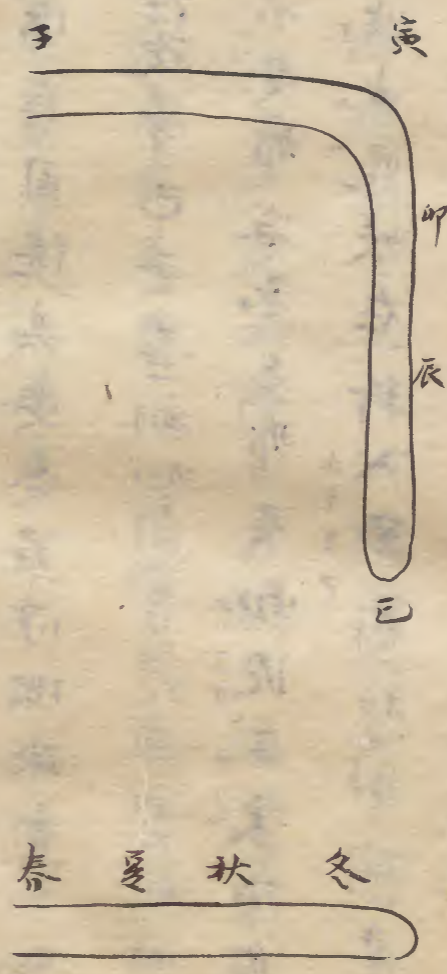 子 寅
卯
辰
巳
春 夏 秋 冬